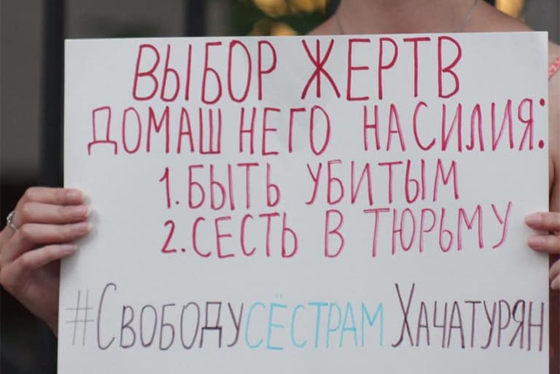 ВЫБОР ЖЕРТВ
ДОМАШНЕГО НАСИЛИЯ:
1. БЫТЬ УБИТЫМ
2. СЕСТЬ В ТЮРЬМУ
#СВОБОДУСЁСТРАМ ХАЧАТУРЯН